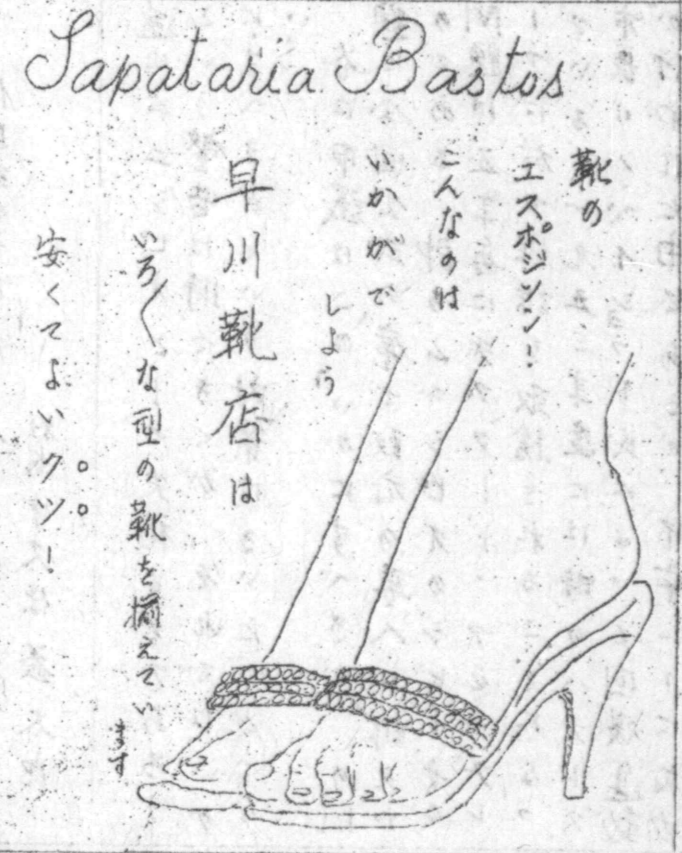 Sapataria Bastos
靴の
エスポジソン!
こんなのは
いかがで
しよう
早川靴店は
いろ〱な型の靴を揃えてい
ます
安くてよいクツ!